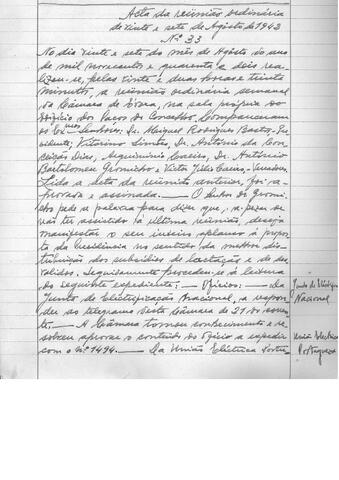 Acta da reunião ordinária
de vinte e sete de Agosto de 1942
Nº 33
No dia vinte e sete do mês de Agosto do ano
de mil novecentos e quarenta e dois rea-
lizou-se, pelas vinte e duas horas e trinta
minutos, a reunião ordinária semanal
da Câmara de, na sala própria do
edifício dos Paços do Concelho. Compareceram
os Exmos Senhores: Dr. Miguel Rodrigues Bastos - Pre-
sidente; Vitorino Simões, Dr. António da Con-
ceição Dias, Dr. António
Bartolomeu Gromicho e Victor Félix - Vereadores.
Lida a acta da reunião anterior, foi a-
provada e assinada. — O Senhor Dr. Gromi-
cho pede a palavra para dizer que, apesar de
não ter assistido à última reunião, deseja
manifestar o seu inteiro aplauso à propos-
ta da Presidência no sentido da melhor dis-
tribuição dos subsídios de lactação e de de-
svalidos. Seguidamente procedeu-se à leitura
do seguinte expediente: — Ofícios: — Da
Junta de Electrificação Nacional, a respon-
der ao telegrama desta Câmara de 21 do corren-
te. — A Câmara tomou conhecimento e re-
solveu aprovar o conteúdo do ofício a expedir
com o nº 1494. — Da União Eléctrica Portu-
Junta de Electrificação
Nacional
União Eléctrica
Portuguesa